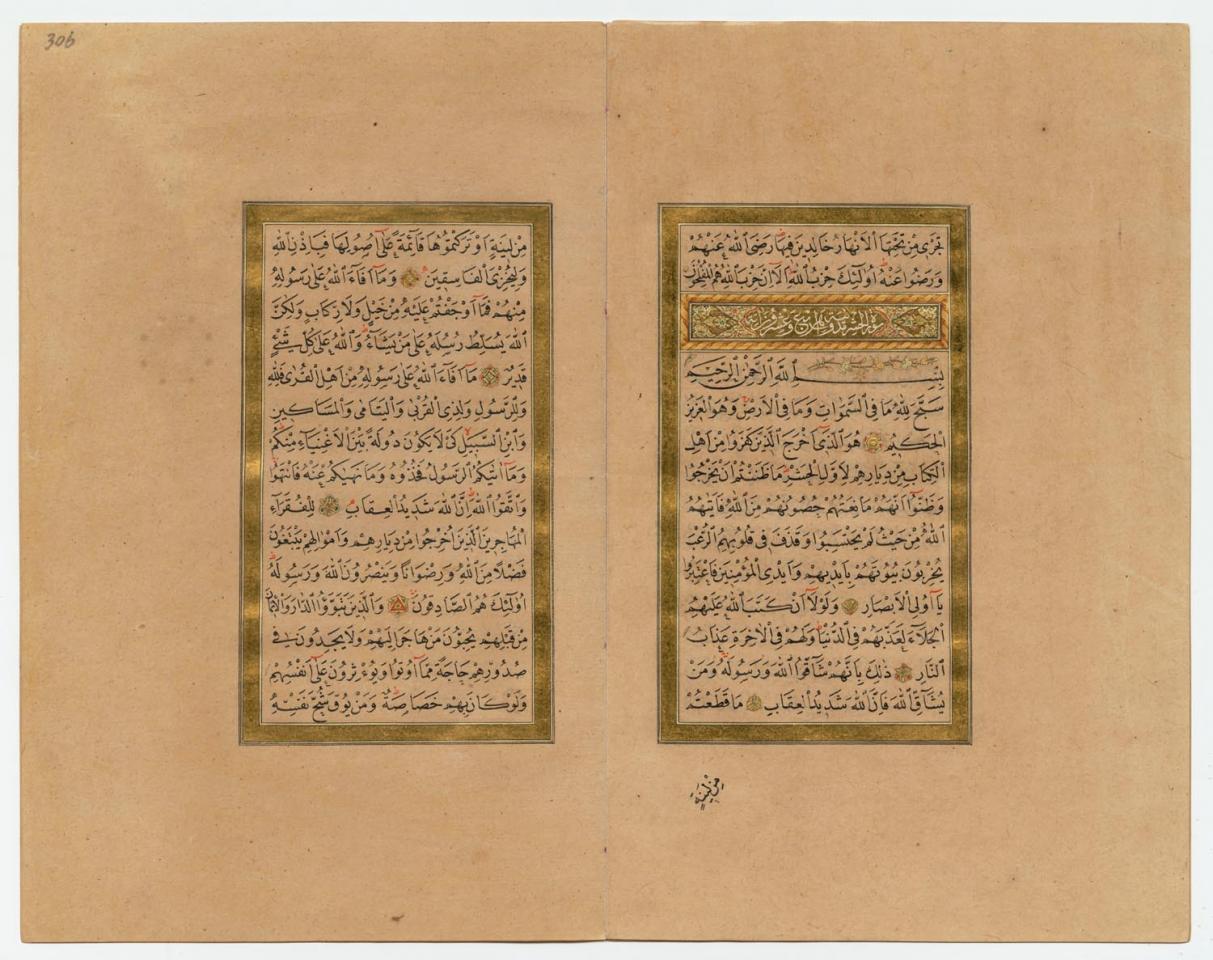 تَجْرِي مِنْ تَحْتِهَا الْاَنْهَارُ خَالِدِينَ فِيهَا رَضِيَ اللّٰهُ عَنْهُمْ
وَرَضُوا عَنْهُ اُولٰٓئِكَ حِزْبُ اللّٰهِ اَلَٓا اِنَّ حِزْبَ اللّٰهِ هُمُ الْمُفْلِحُونَ
سورة الحشر مدنية وهى اربع وعشرون
بِسْمِ اللّٰهِ الرَّحْمٰنِ الرَّحِيمِ
سَبَّحَ لِلّٰهِ مَا فِي السَّمٰوَاتِ وَمَا فِي الْاَرْضِ وَهُوَ الْعَزِيزُ
الْحَكِيمُ هُوَ الَّذِٓي اَخْرَجَ الَّذِينَ كَفَرُوا مِنْ اَهْلِ
الْكِتَابِ مِنْ دِيَارِهِمْ لِاَوَّلِ الْحَشْرِ مَا ظَنَنْتُمْ اَنْ يَخْرُجُوا
وَظَنُّٓوا اَنَّهُمْ مَانِعَتُهُمْ حُصُونُهُمْ مِنَ اللّٰهِ فَاَتٰيهُمُ
اللّٰهُ مِنْ حَيْثُ لَمْ يَحْتَسِبُوا وَقَذَفَ فِي قُلُوبِهِمُ الرُّعْبَ
يُخْرِبُونَ بُيُوتَهُمْ بِاَيْدِيهِمْ وَاَيْدِي الْمُؤْمِنِينَ فَاعْتَبِرُوا
يَٓا اُولِي الْاَبْصَارِ وَلَوْلَٓا اَنْ كَتَبَ اللّٰهُ عَلَيْهِمُ
الْجَلَٓاءَ لَعَذَّبَهُمْ فِي الدُّنْيَا وَلَهُمْ فِي الْاٰخِرَةِ عَذَابُ
النَّارِ ذٰلِكَ بِاَنَّهُمْ شَٓاقُّوا اللّٰهَ وَرَسُولَهُ وَمَنْ
يُشَٓاقِّ اللّٰهَ فَاِنَّ اللّٰهَ شَدِيدُ الْعِقَابِ مَا قَطَعْتُمْ
مِنْ لِينَةٍ
306
مِنْ لِينَةٍ اَوْ تَرَكْتُمُوهَا قَٓائِمَةً عَلٰٓى اُصُولِهَا فَبِاِذْنِ اللّٰهِ
وَلِيُخْزِيَ الْفَاسِقِينَ وَمَٓا اَفَٓاءَ اللّٰهُ عَلٰى رَسُولِهِ
مِنْهُمْ فَمَٓا اَوْجَفْتُمْ عَلَيْهِ مِنْ خَيْلٍ وَلَا رِكَابٍ وَلٰكِنَّ
اللّٰهَ يُسَلِّطُ رُسُلَهُ عَلٰى مَنْ يَشَٓاءُ وَاللّٰهُ عَلٰى كُلِّ شَيْءٍ
قَدِيرٌ مَٓا اَفَٓاءَ اللّٰهُ عَلٰى رَسُولِهِ مِنْ اَهْلِ الْقُرٰى فَلِلّٰهِ
وَلِلرَّسُولِ وَلِذِي الْقُرْبٰى وَالْيَتَامٰى وَالْمَسَاكِينِ
وَابْنِ السَّبِيلِ كَيْ لَا يَكُونَ دُولَةً بَيْنَ الْاَغْنِيَٓاءِ مِنْكُمْ
وَمَٓا اٰتٰيكُمُ الرَّسُولُ فَخُذُوهُ وَمَا نَهٰيكُمْ عَنْهُ فَانْتَهُوا
وَاتَّقُوا اللّٰهَ اِنَّ اللّٰهَ شَدِيدُ الْعِقَابِ لِلْفُقَرَٓاءِ
الْمُهَاجِرِينَ الَّذِينَ اُخْرِجُوا مِنْ دِيَارِهِمْ وَاَمْوَالِهِمْ يَبْتَغُونَ
فَضْلًا مِنَ اللّٰهِ وَرِضْوَانًا وَيَنْصُرُونَ اللّٰهَ وَرَسُولَهُ
اُولٰٓئِكَ هُمُ الصَّادِقُونَ وَالَّذِينَ تَبَوَّؤُا الدَّارَ وَالْاِيمَانَ
مِنْ قَبْلِهِمْ يُحِبُّونَ مَنْ هَاجَرَ اِلَيْهِمْ وَلَا يَجِدُونَ فِي
صُدُورِهِمْ حَاجَةً مِمَّٓا اُوتُوا وَيُؤْثِرُونَ عَلٰٓى اَنْفُسِهِمْ
وَلَوْ كَانَ بِهِمْ خَصَاصَةٌ وَمَنْ يُوقَ شُحَّ نَفْسِهِ